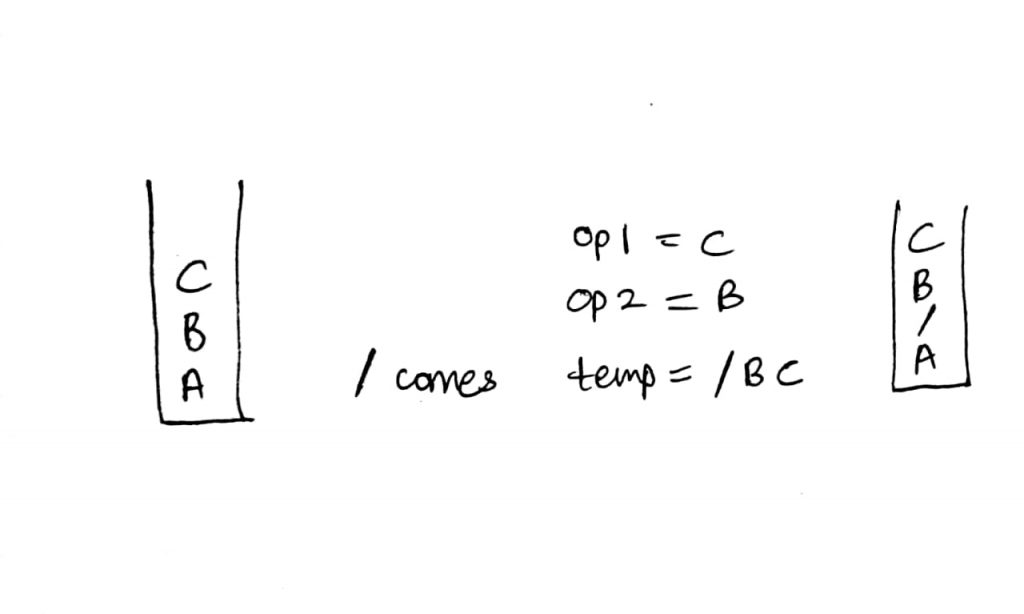 C
B
A
/ comes
op1 = C
op2 = B
temp = /BC
C
B
/
A